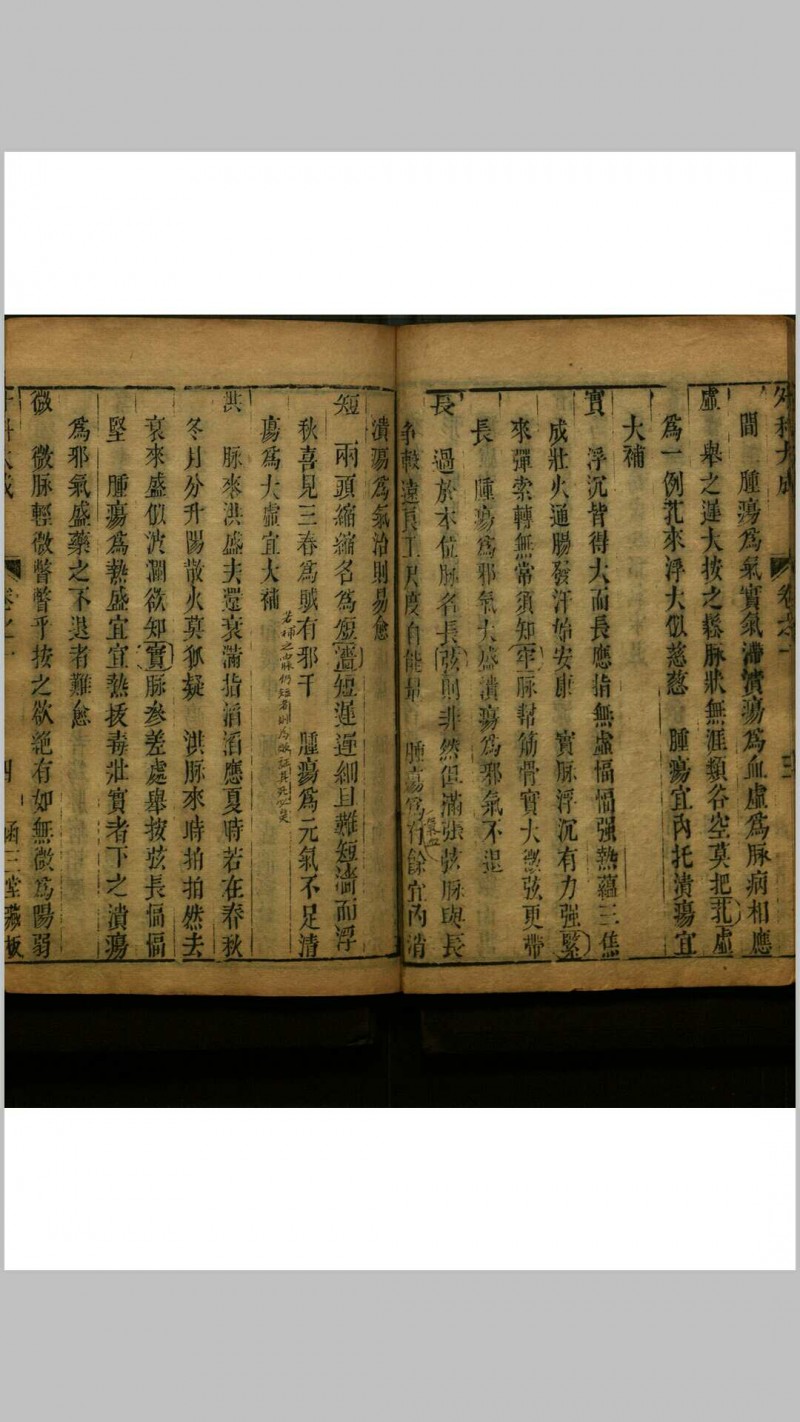 外科大成 卷之一 三
間 腫瘍為氣實氣滯潰瘍為血虛為脉病相應
虛 舉之遲大按之鬆脉狀無涯類谷空莫把芤虛
為一例芤來浮大似慈葱 腫瘍宜內托潰瘍宜
大補
實 浮沉皆得大而長應指無虛愊愊強熱蘊三焦
成壯火通腸發汗始安康 實脉浮沉有力强緊
來彈索轉無常須知牢脉幫筋骨實大微弦更帶
長 腫瘍為邪氣大盛潰瘍為邪氣不退
長 過於本位脉名長弦則非然但滿張弦脉與長
爭較遠良工尺度自能量 腫瘍為有餘宜內消
潰瘍為氣治則易愈
短 兩頭縮縮名為短澀短遲遲細且難短濇而浮
秋喜見三春為賊有邪干 腫瘍為元氣不足潰
瘍為大虛宜大補
若補之而脉仍短者
洪 脉來洪盛去還衰滿指滔滔應夏時若在春秋
冬月分升陽散火莫狐疑 洪脉來時拍拍然去
衰來盛似波瀾欲知實脉參差處舉按弦長愊愊
堅 腫瘍為熱盛宜宣熱拔毒壯實者下之潰瘍
為邪氣盛藥之不退者難愈
微 微脉輕微瞥瞥乎按之欲絕有如無微為陽弱
四 函三堂藏板